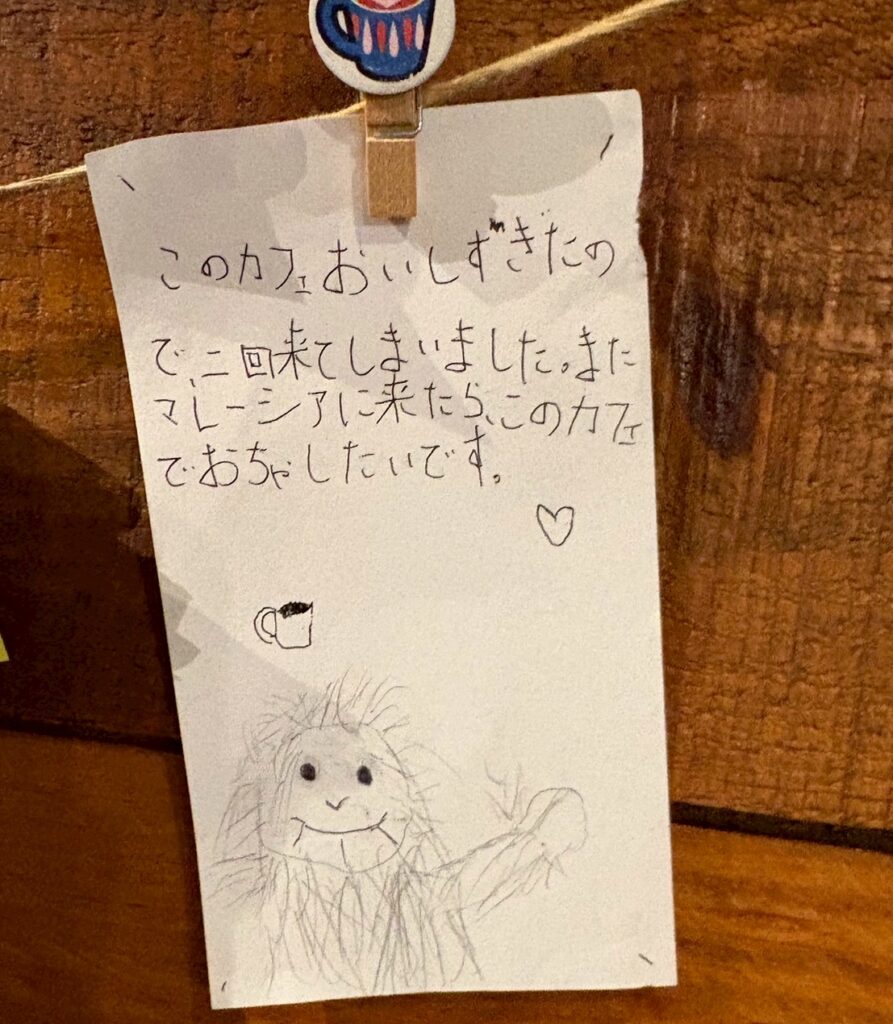 このカフェおいしずぎたの
で、二回来てしまいました。また
マレーシアに来たら、このカフェ
でおちゃしたいです。